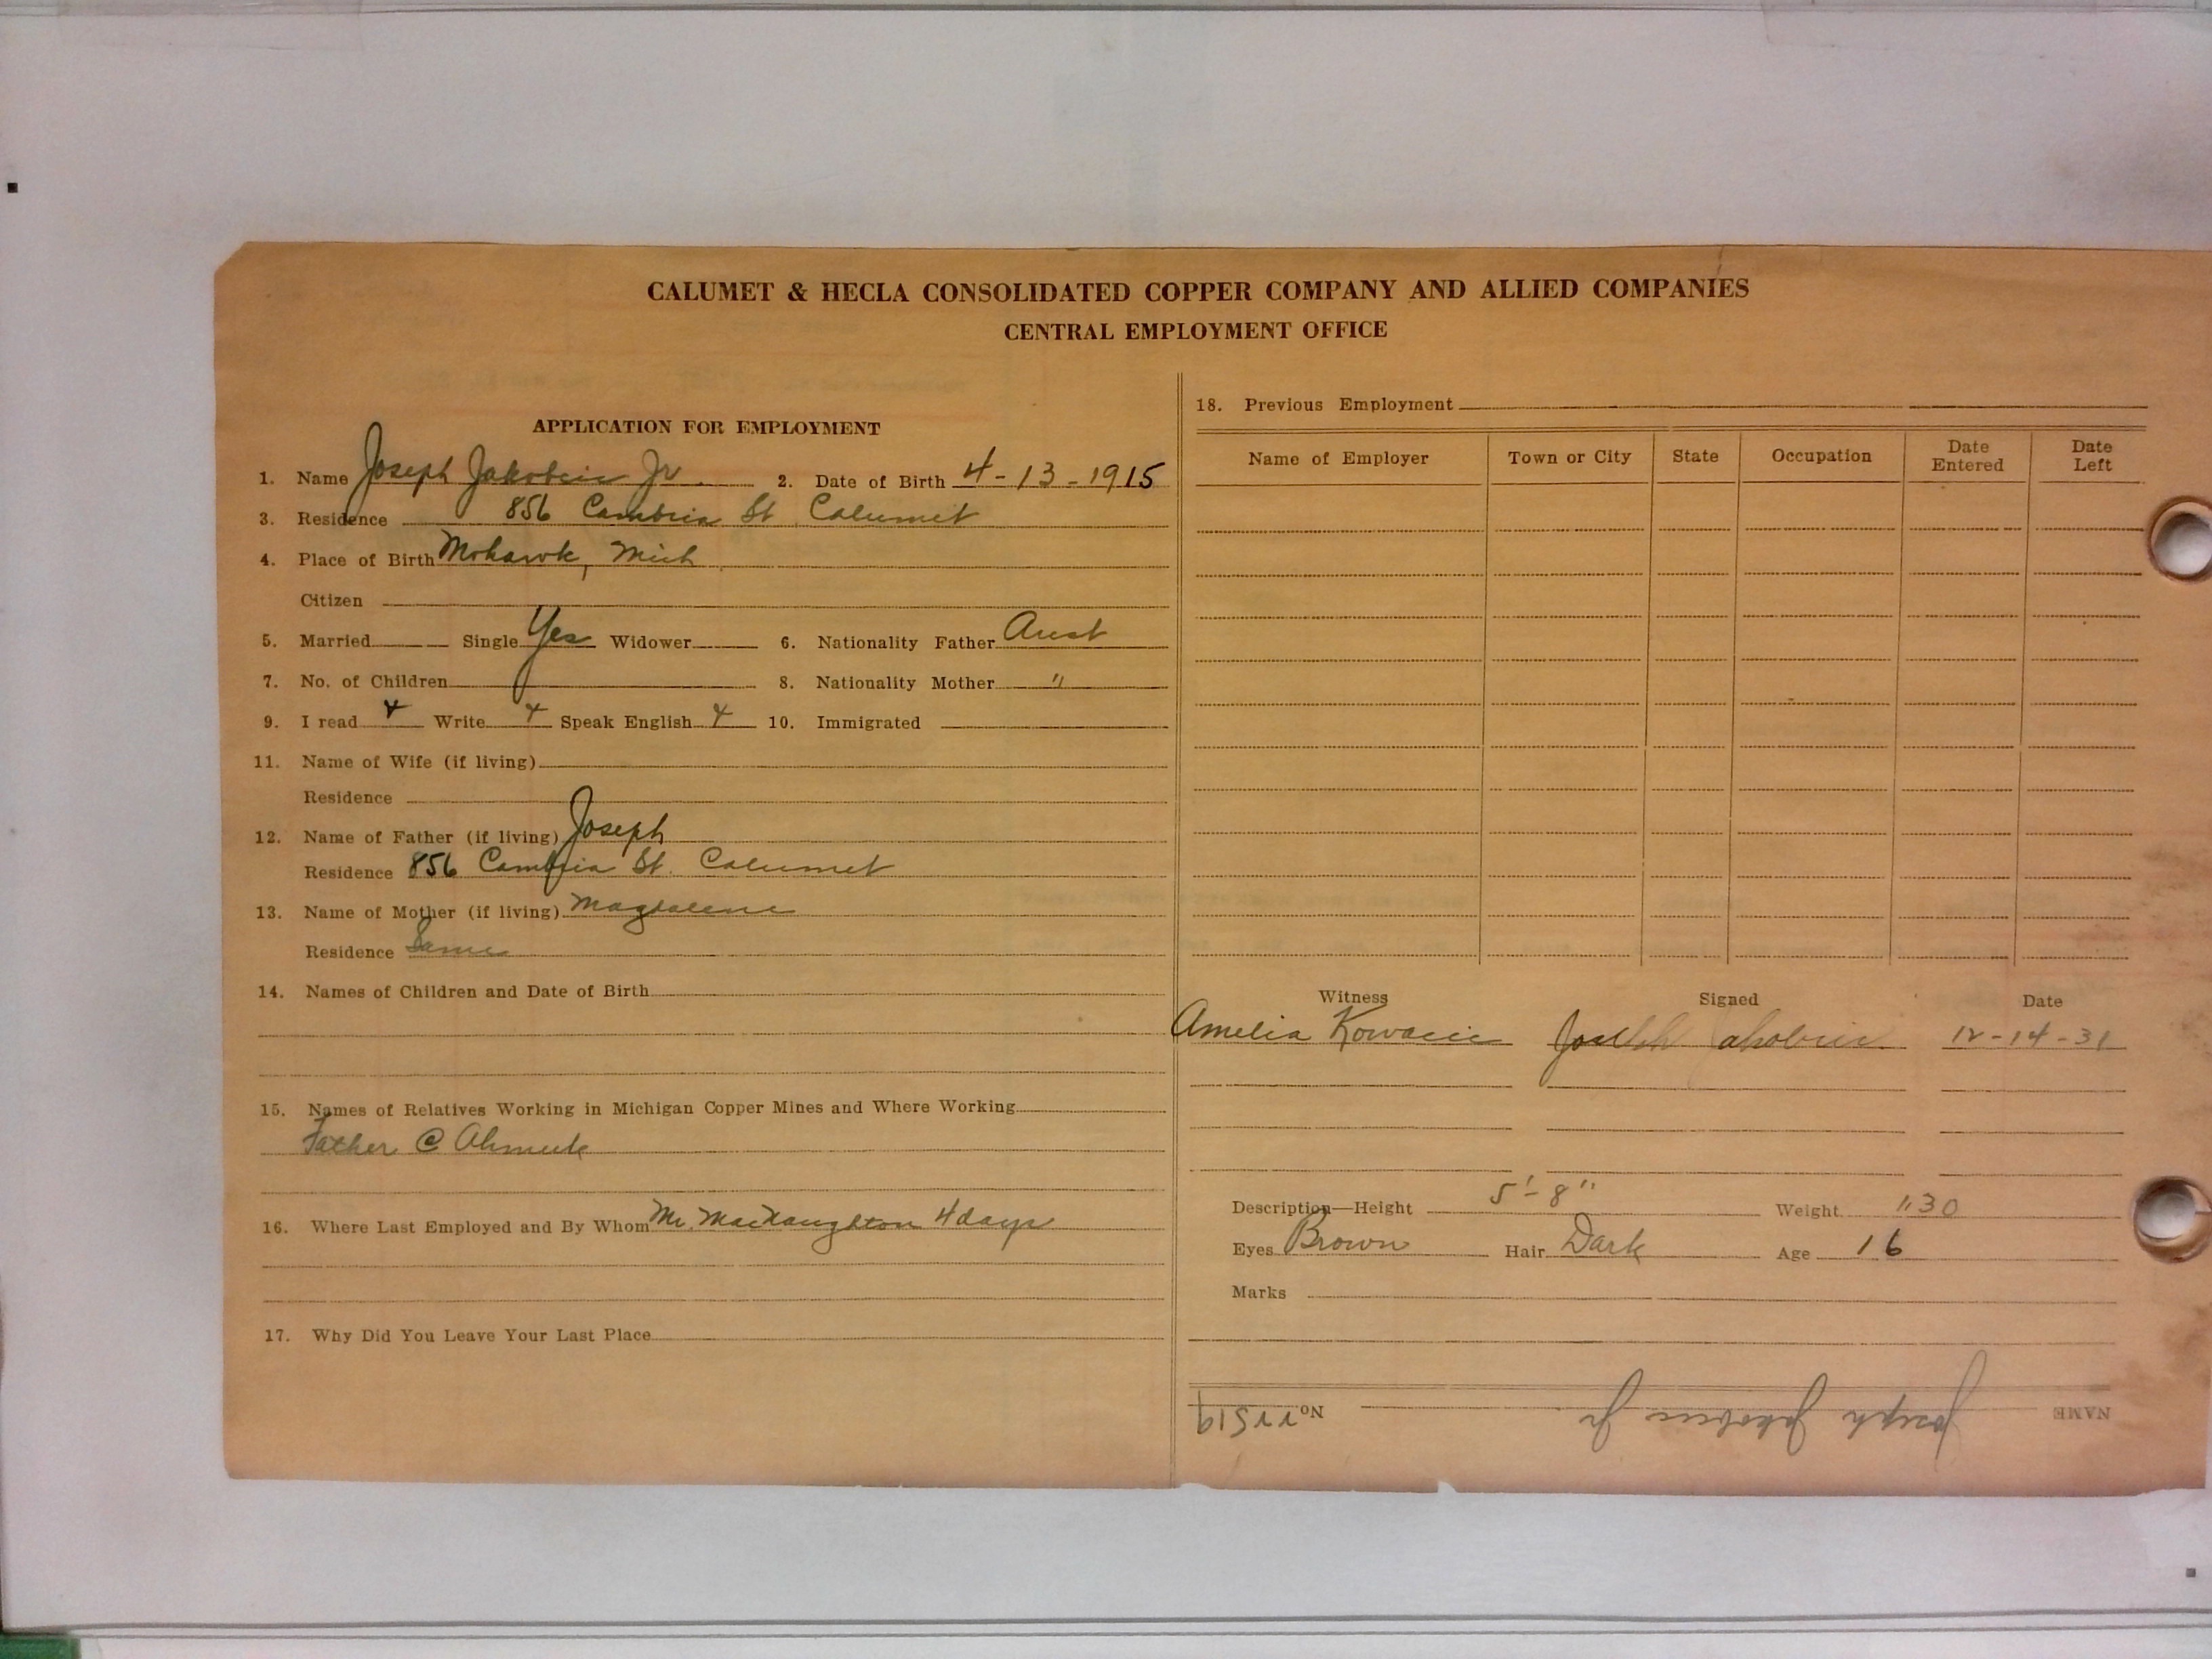 CALUMET & HECLA CONSOLIDATED COPPER COMPANY AND ALLIED COMPANIES
CENTRAL EMPLOYMENT OFFICE
APPLICATION FOR EMPLOYMENT
1. Name Joseph Jakobcic Jr. 2. Date of Birth 4-13-1915
3. Residence 856 Cambria St Calumet
4. Place of Birth Mohawk, Mich
Citizen
5. Married Single Yes Widower 6. Nationality Father Aust
7. No. of Children 8. Nationality Mother "
9. I read Write Speak English 10. Immigrated
11. Name of Wife (if living)
Residence
12. Name of Father (if living) Joseph
Residence 856 Cambria St. Calumet
13. Name of Mother (if living) Magdalene
Residence Same
14. Names of Children and Date of Birth
15. Names of Relatives Working in Michigan Copper Mines and Where Working
Father @ Ahmeek
16. Where Last Employed and By Whom Mr. MacNaughton 4 days
17. Why Did You Leave Your Last Place
18. Previous Employment
Name of Employer Town or City State Occupation Date Entered Date Left
Witness Signed Date
Amelia Kowacic Joseph Jakobcic 12-14-31
Description—Height 5'-8" Weight 130
Eyes Brown Hair Dark Age 16
Marks
NAME Joseph Jakobcic Jr No. 22519